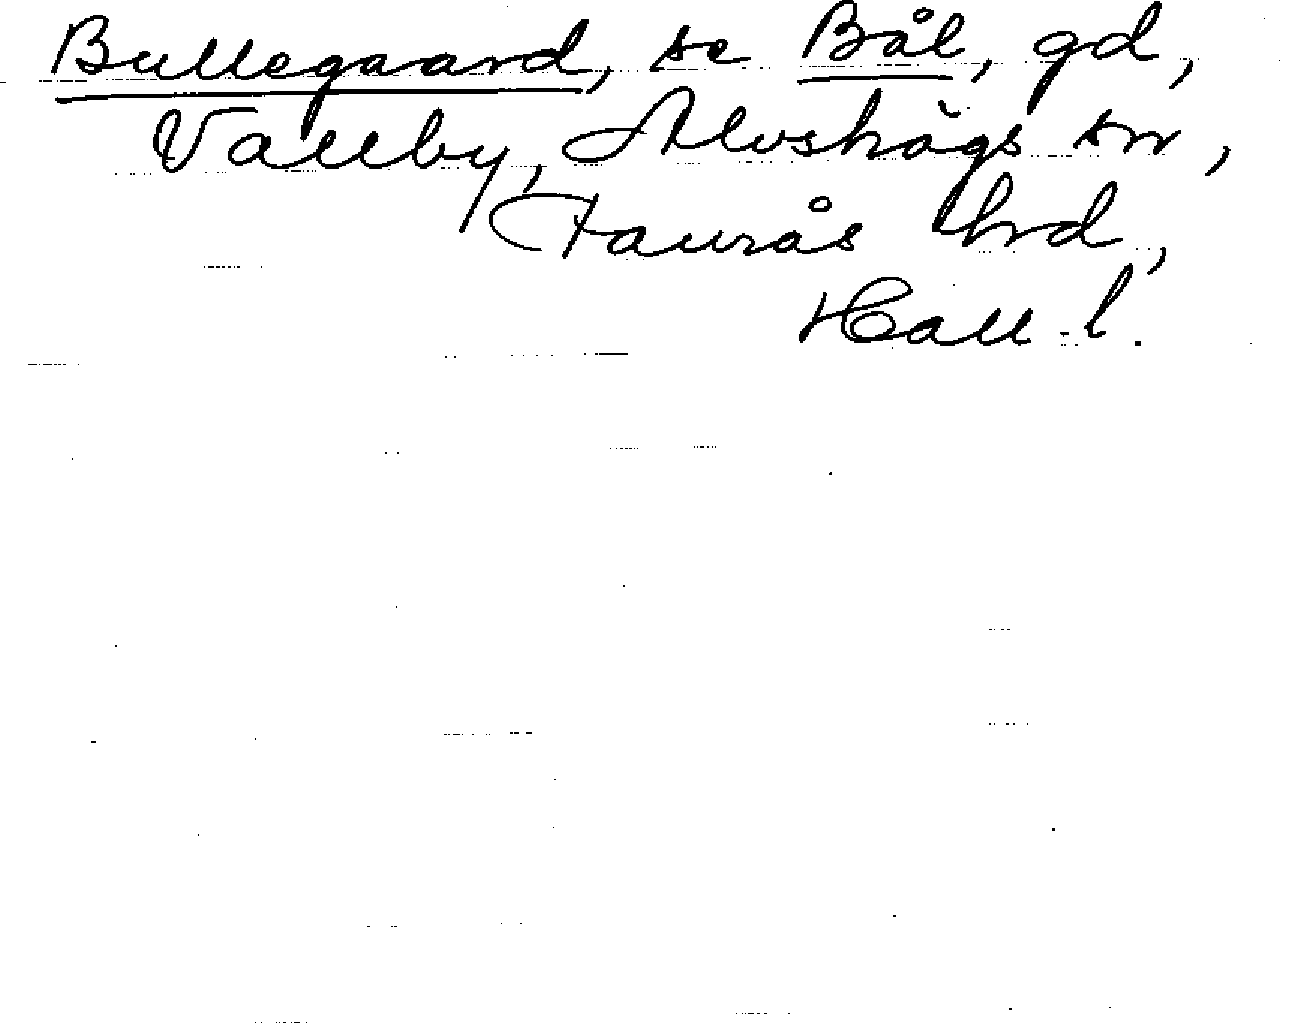 Bullegaard, se Bål, gd,
Vallby, Alvshögs sn,
Faurås hrd,
Hall. l.